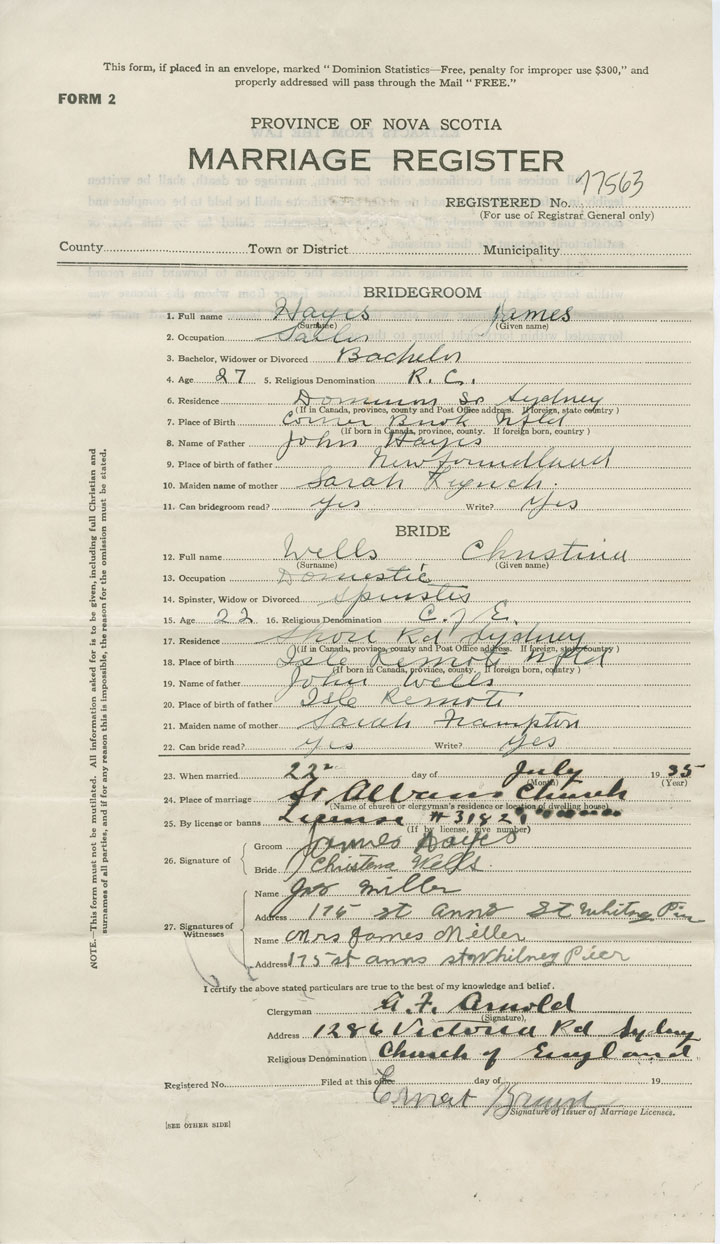 This form, if placed in an envelope, marked "Dominion Statistics—Free, penalty for improper use $300," and
properly addressed will pass through the Mail "FREE."
FORM 2
PROVINCE OF NOVA SCOTIA
MARRIAGE REGISTER
REGISTERED No. 77563
(For use of Registrar General only)
County Town or District Municipality
BRIDEGROOM
1. Full name Hayes James
(Surname) (Given name)
2. Occupation Sailor
3. Bachelor, Widower or Divorced Bachelor
4. Age 27 5. Religious Denomination R. C.
6. Residence Dominion St Sydney
(If in Canada, province, county and Post Office address. If foreign, state country)
7. Place of Birth Corner Brook Nfld
(If born in Canada, province, county. If foreign born, country)
8. Name of Father John Hayes
9. Place of birth of father Newfoundland
10. Maiden name of mother Sarah Lynch
11. Can bridegroom read? yes Write? Yes
BRIDE
12. Full name Wells Christina
(Surname) (Given name)
13. Occupation Domestic
14. Spinster, Widow or Divorced Spinster
15. Age 22 16. Religious Denomination C. of E.
17. Residence Short Rd Sydney
(If in Canada, province, county and Post Office address. If foreign, state country)
18. Place of birth Isle Remote Nfld
(If born in Canada, province, county. If foreign born, country)
19. Name of father John Wells
20. Place of birth of father Isle Remote
21. Maiden name of mother Sarah Frampton
22. Can bride read? yes Write? Yes
23. When married 22 day of July 1935
(Month) (Year)
24. Place of marriage St Albans Church
(Name of church or clergyman's residence or location of dwelling house)
25. By license or banns License # 3182
(If by license, give number)
26. Signature of Groom James Hayes
Bride Christena Wells
27. Signatures of Witnesses Name Jas Miller
Address 175 st Anns St Whitney Pier
Name Mrs James Miller
Address 175 st anns st Whitney Pier
I certify the above stated particulars are true to the best of my knowledge and belief.
Clergyman A. F. Arnold
(Signature)
Address 1286 Victoria Rd Sydney
Religious Denomination Church of England
Registered No. Filed at this office day of 19
Ernest
Signature of Issuer of Marriage Licenses.
[SEE OTHER SIDE]
NOTE.—This form must not be mutilated. All information asked for is to be given, including full Christian and
surnames of all parties, and if for any reason this is impossible, the reason for the omission must be stated.